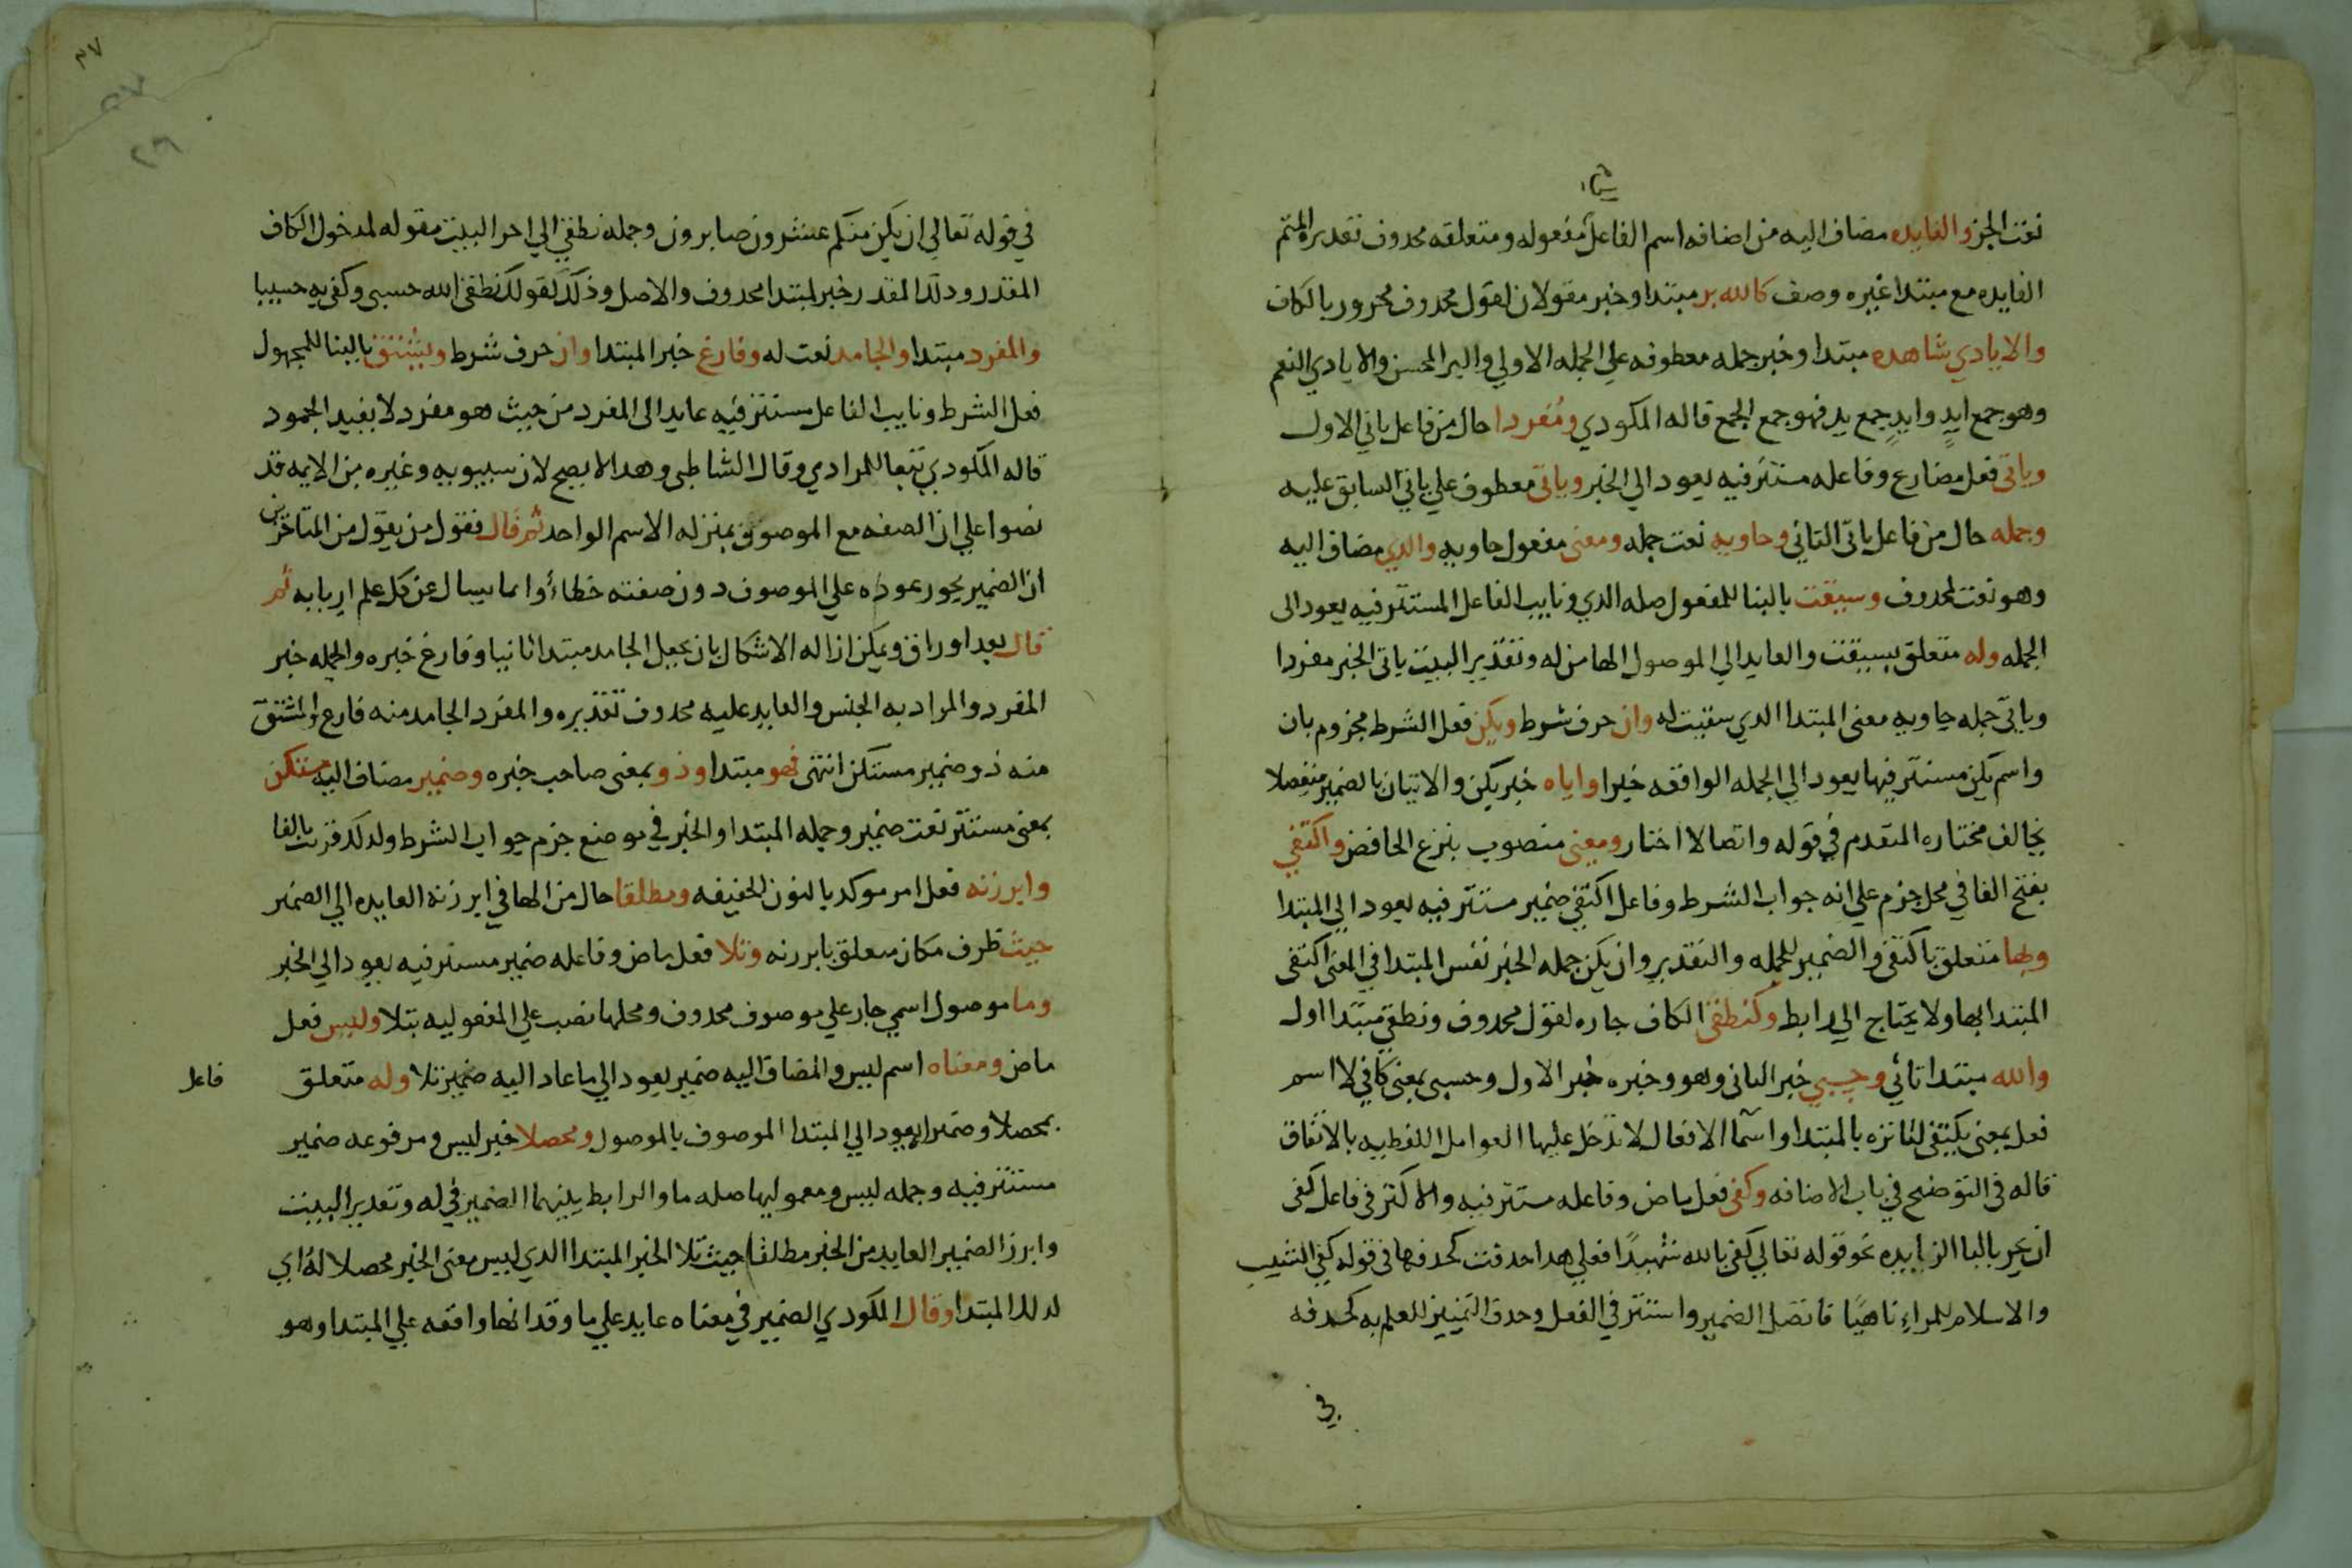 نعت الجز والفايده مضاف اليه من اضافه اسم الفاعل لمفعوله ومتعلقه محذوف تقديره المتم
الفايده مع مبتدا غيره وصف كالله بر مبتدا وخبر مقولان لقول محدوف مجرور بالكاف
والايادي شاهده مبتدا وخبر جمله معطوفه علي الجمله الاولي والبر المحسن والايادي النعم
وهو جمع ايدٍ وايدٍ جمع يد فهو جمع الجمع قاله المكودي ومفردا حال من فاعل ياتي الاول
وياتي فعل مضارع وفاعله مستتر فيه يعود الي الخبر وياتي معطوف علي ياتي السابق عليه
وجمله حال من فاعل ياتي الثاني وحاويه نعت جمله ومعني مفعول حاويه والدي مضاف اليه
وهو نعت لمحدوف وسيقت بالبنا للمفعول صله الدي ونايب الفاعل المستتر فيه يعود الى
الجمله وله متعلق بسيقت والعايد الي الموصول الها من له وتقدير البيت ياتي الخبر مفردا
وياتي جمله حاويه معنى المبتدا الدي سيقت له وان حرف شرط ويكن فعل الشرط مجزوم بان
واسم يكن مستتر فيها يعود الي الجمله الواقعه خبرا واياه خبر يكن والاتيان بالضمير منفصلا
يخالف مختاره المتقدم في قوله واتصالا اختار ومعنى منصوب بنزع الخافض واكتفي
بفتح الفا في محل جزم علي انه جواب الشرط وفاعل اكتفي ضمير مستتر فيه يعود الي المبتدا
وبها متعلق باكتفي والضمير للجمله والتقدير وان يكن جمله الخبر نفس المبتدا في المعنى اكتفى
المبتدا بها ولا يحتاج الي رابط وكنطقي الكاف جاره لقول محدوف ونطقي مبتدا اول
والله مبتدا ثاني وحسبي خبر الثاني وهو وخبره خبر الاول وحسبي بمعنى كافي لا اسم
فعل بمعنى يكتفي لتاثره بالمبتدا واسما الافعال لا تدخل عليها العوامل اللفظيه بالاتفاق
قاله في التوضيح في باب الاضافه وكفي فعل ماض وفاعله مستتر فيه والاكثر في فاعل كفى
ان يجر بالبا الزايده نحو قوله تعالي كفى بالله شهيدًا فعلي هدا حدفت كحدفها في قوله كفي الشيب
والاسلام للمراءِ ناهيًا فاتصل الضمير واستتر في الفعل وحدف التمييز للعلم به كحدفه
في
في قوله تعالي ان يكن منكم عشرون صابرون وجمله نطقي الي اخر البيت مقوله لمدخول الكاف
المقدر ودلك المقدر خبر لمبتدا محدوف والاصل وذلك كقولك نطقي الله حسبي وكفي به حسيبا
والمفرد مبتدا والجامد نعت له وفارغ خبر المبتدا وان حرف شرط ويشتق بالبنا للمجهول
فعل الشرط ونايب الفاعل مستتر فيه عايد الى المفرد من حيث هو مفرد لا بقيد الجمود
قاله المكودي تبعا للمرادي وقال الشاطبي وهدا لا يصح لان سيبويه وغيره من الايمه قد
نصوا علي ان الصفه مع الموصوف بمنزله الاسم الواحد ثم قال فقول من يقول من المتاخرين
ان الضمير يجوز عوده علي الموصوف دون صفته خطاء وانما يسال عن كل علم اربابه ثم
قال بعد اوراق ويمكن ازاله الاشكال بان يجعل الجامد مبتدا ثانيا وفارغ خبره والجمله خبر
المفرد والمراد به الجنس والعايد عليه محدوف تقديره والمفرد الجامد منه فارغ والمشتق
منه ذو ضمير مستكن انتهى فهو مبتدا وذو بمعنى صاحب خبره وضمير مضاف اليه مستكن
بمعنى مستتر نعت ضمير وجمله المبتدا والخبر في موضع جزم جواب الشرط ولدلك قرنت بالفا
وابرزنه فعل امر موكد بالنون الخفيفه ومطلقا حال من الها في ابرزنه العايده الي الضمير
حيث ظرف مكان متعلق بابرزنه وتلا فعل ماض وفاعله ضمير مستتر فيه يعود الي الخبر
وما موصول اسمي جار علي موصوف محدوف ومحلها نصب علي المفعوليه بتلا وليس فعل
ماض ومعناه اسم ليس والمضاف اليه ضمير يعود الي ما عاد اليه ضمير تلا وله متعلق
فاعل
بمحصلا وضميرا يعود الي المبتدا الموصوف بالموصول ومحصلا خبر ليس ومرفوعه ضمير
مستتر فيه وجمله ليس ومعموليها صله ما والرابط بينهما الضمير في له وتقدير البيت
وابرز الضمير العايد من الخبر مطلقا حيث تلا الخبر المبتدا الدي ليس معنى الخبر محصلا له اي
لدلك المبتدا وقال المكودي الضمير في معناه عايد علي ما وقد انها واقعه علي المبتدا وهو